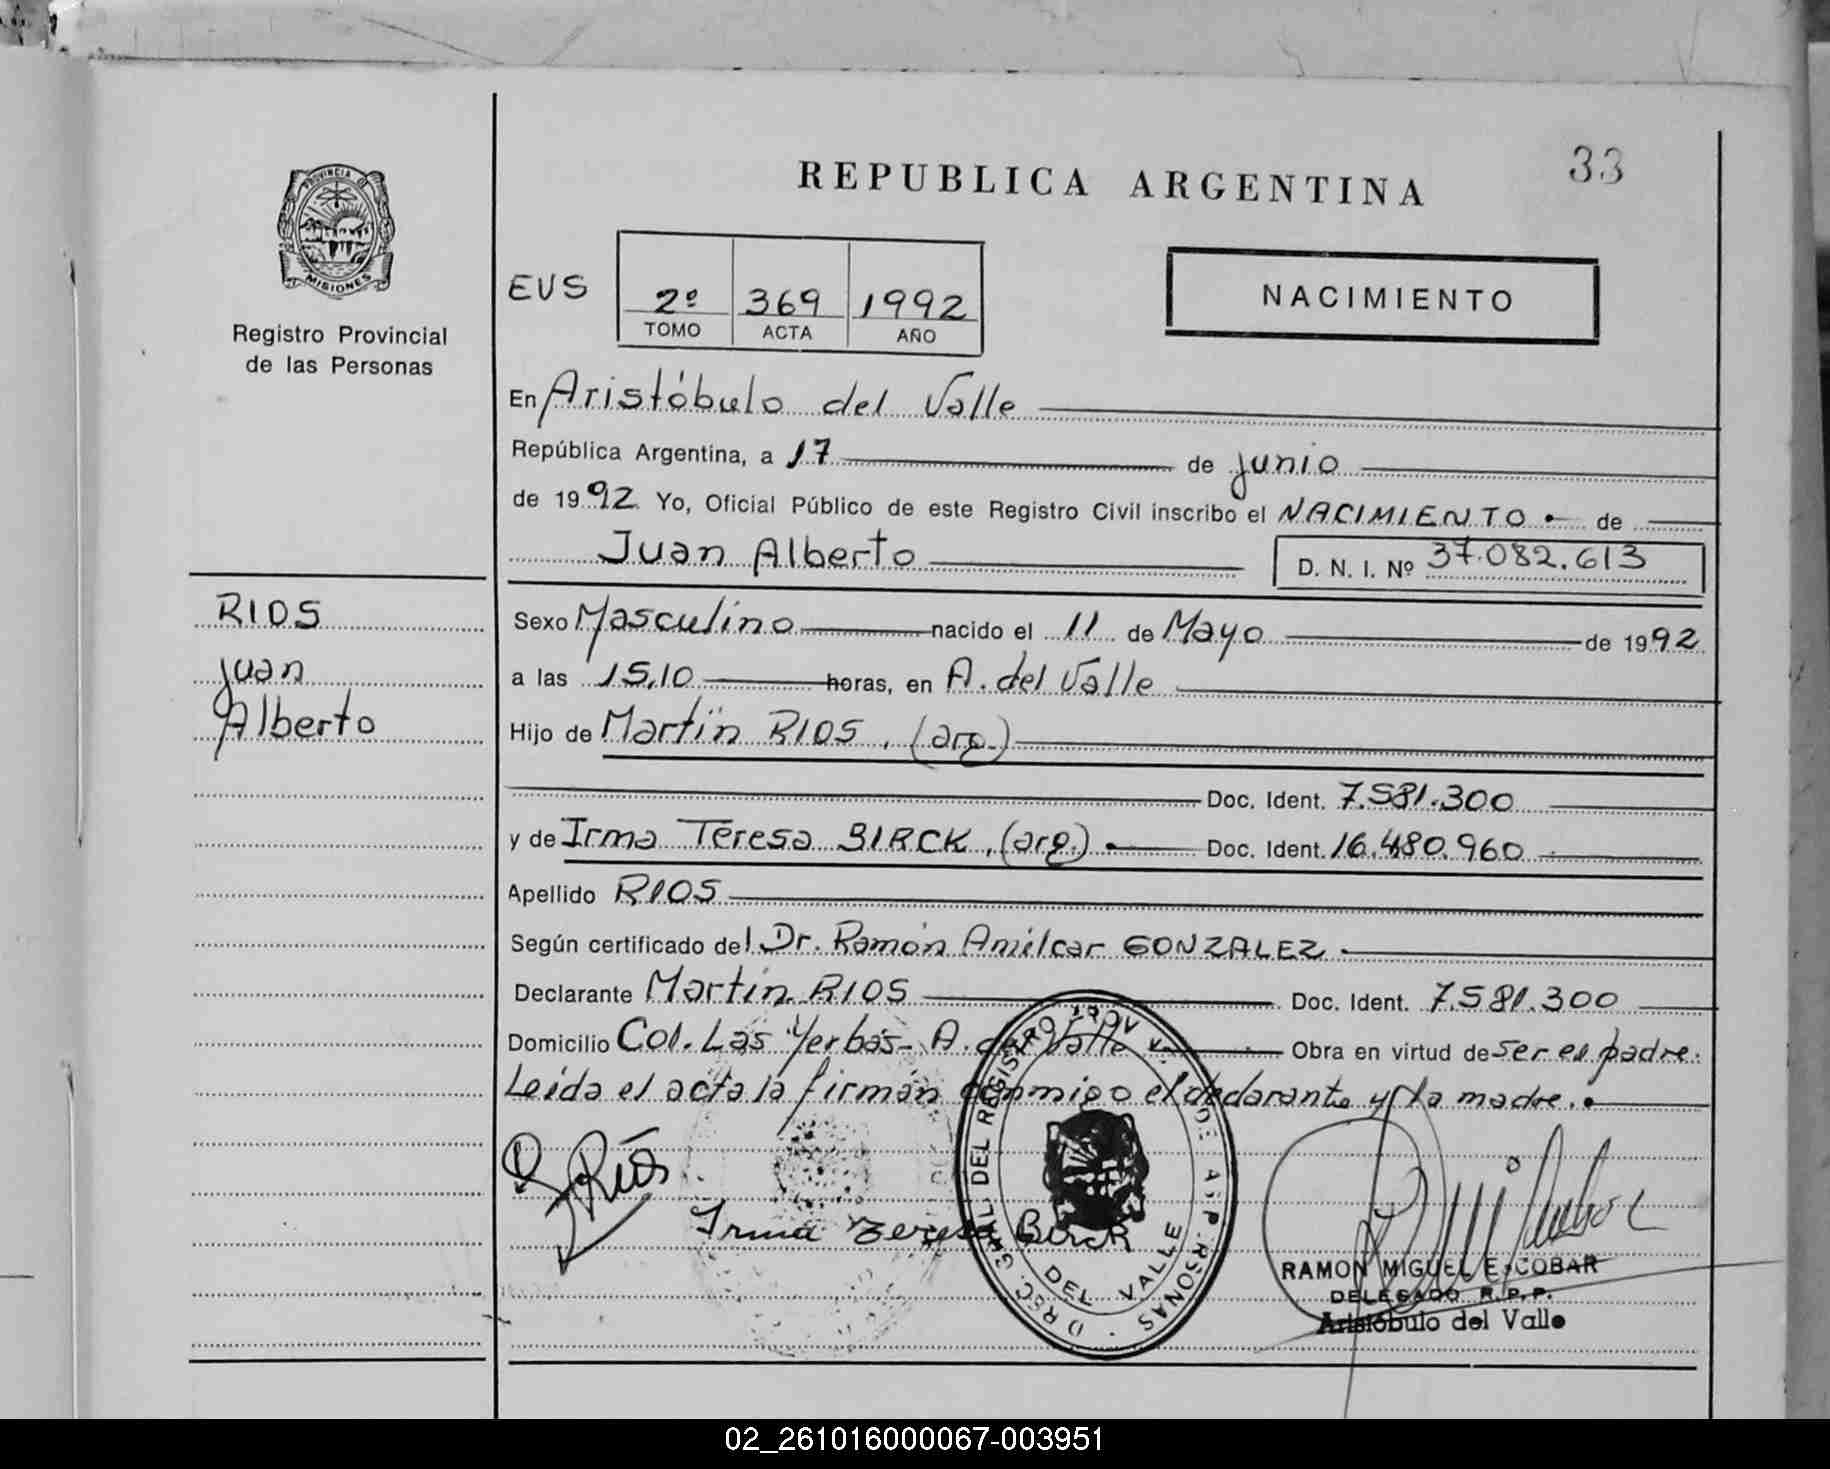 33
REPUBLICA ARGENTINA
PROVINCIA D
MISIONES
Registro Provincial
de las Personas
EVS
2º 369 1992
TOMO ACTA AÑO
NACIMIENTO
En Aristóbulo del Valle
República Argentina, a 17 de junio
de 1992 Yo, Oficial Público de este Registro Civil inscribo el NACIMIENTO de
Juan Alberto D. N. I. Nº 37.082.613
RIOS
Juan
Alberto
Sexo Masculino nacido el 11 de Mayo de 1992
a las 15,10 horas, en A. del Valle
Hijo de Martín RIOS, (arg.)
Doc. Ident. 7.581.300
y de Irma Teresa BIRCK, (arg.) Doc. Ident. 16.480.960
Apellido RIOS
Según certificado del Dr. Ramón Amílcar GONZALEZ
Declarante Martín RIOS Doc. Ident. 7.581.300
Domicilio Col. Las Yerbas- A. del Valle Obra en virtud de ser el padre.
Leída el acta la firman conmigo el declarante y la madre.
Ríos
Irma Teresa Birck
DEL REGISTRO PROV. DE
DEL VALLE
RAMON MIGUEL ESCOBAR
DELEGADO R.P.P.
Aristóbulo del Valle
02_261016000067-003951